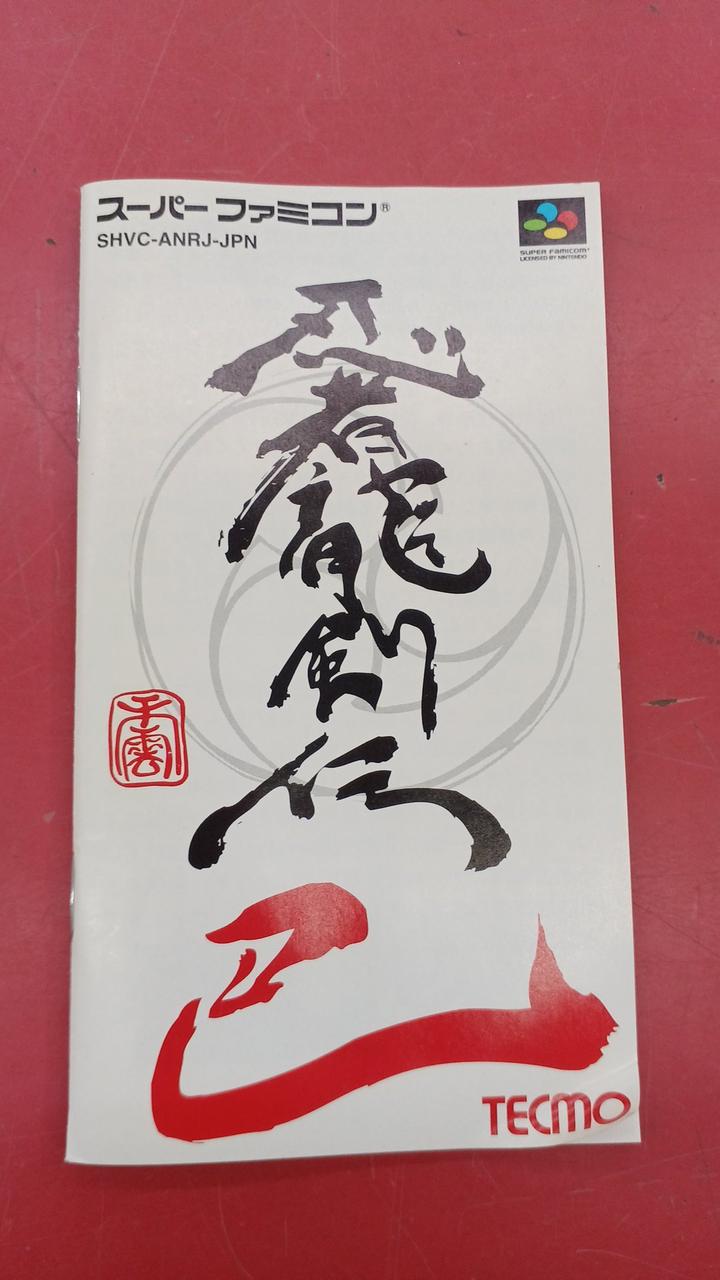 スーパーファミコン®
SHVC-ANRJ-JPN
SUPER FAMICOM®
LICENSED BY NINTENDO
忍者龍剣伝
千雲
巴
TECMO